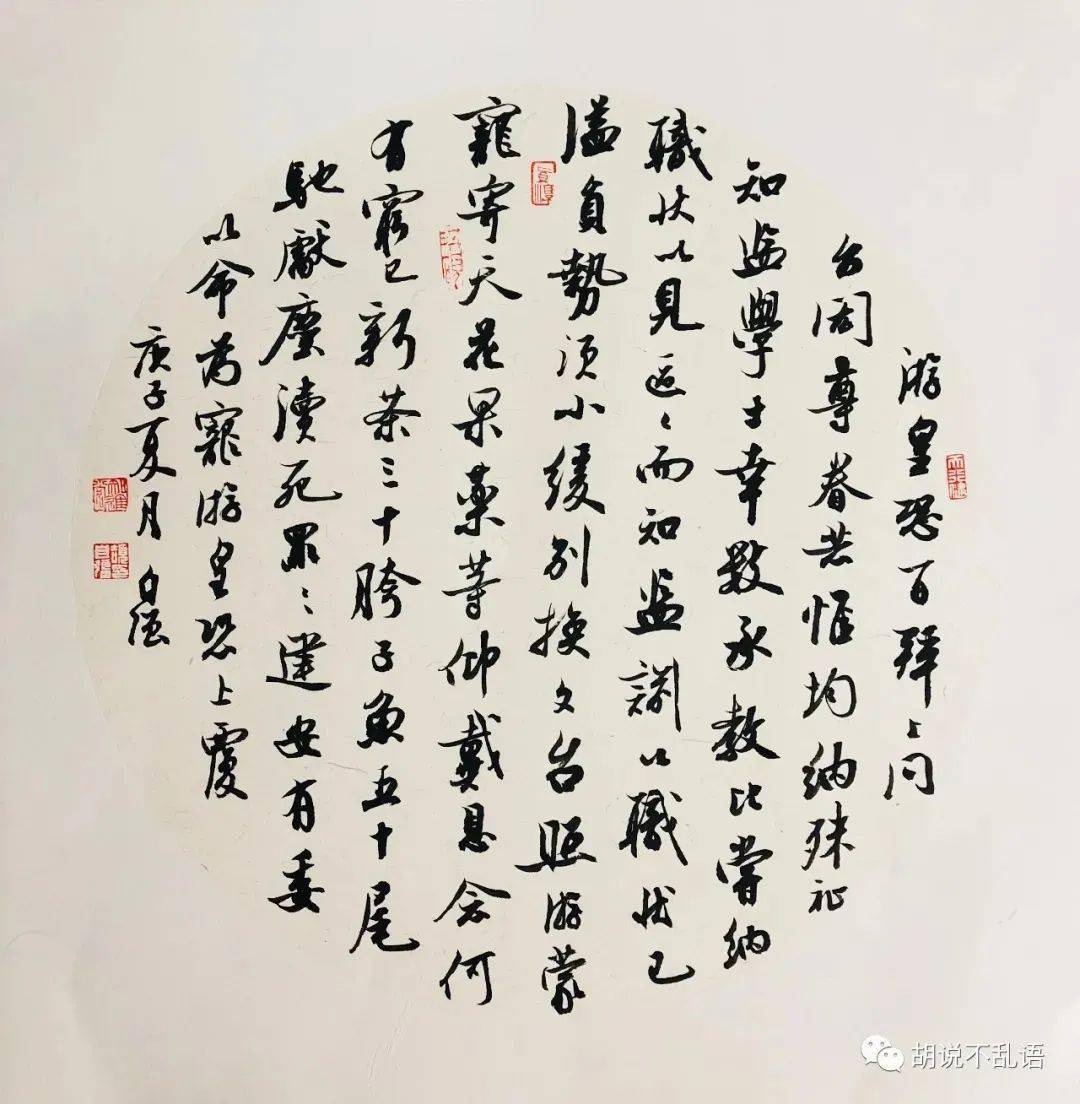 游皇恐百拜上问
台閤尊眷共惟均纳殊祉
知监學士幸數承教比嘗纳
職狀以見區〻而知监諭以職狀已
溢員勢須小緩别换文台照游蒙
寵寄天花果藥等仰戴恩念何
有窮已新茶三十胯子魚五十尾
馳獻塵瀆死罪〻建安有委
以命為寵游皇恐上覆
庚子夏月 白强
胡说不乱语